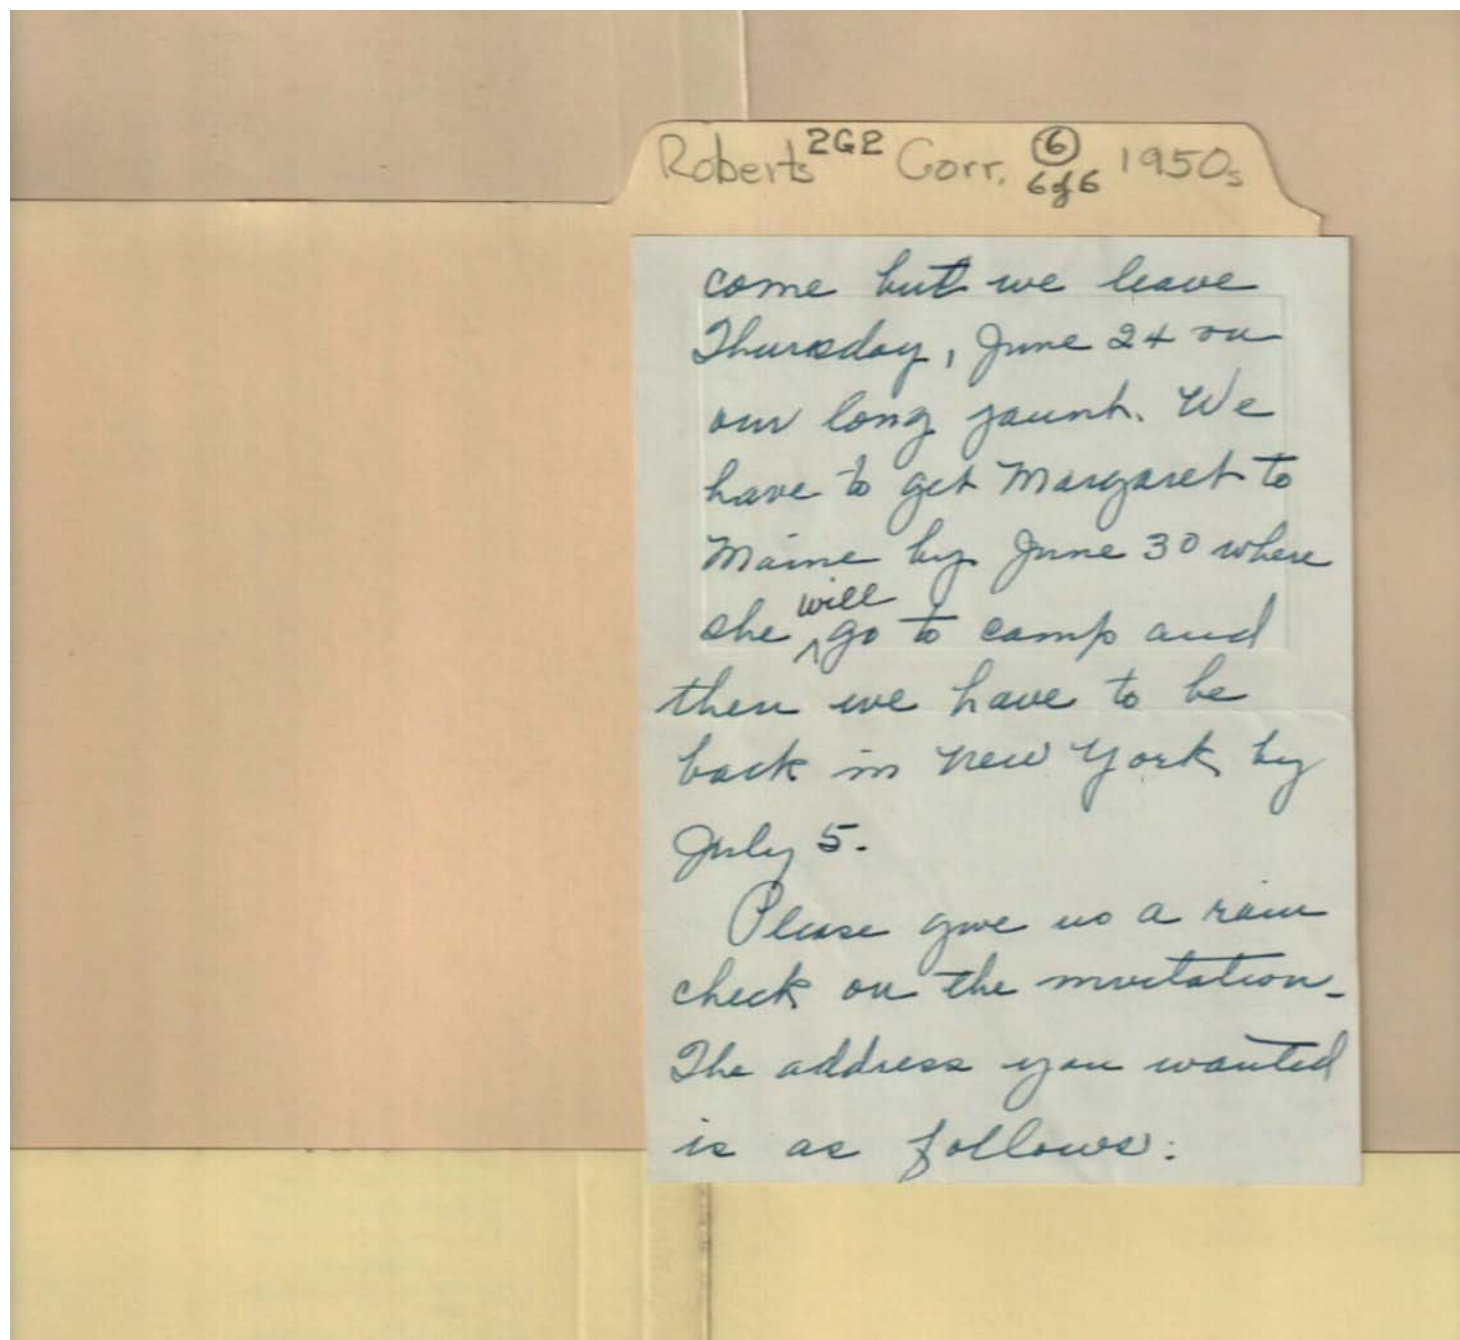 Roberts 2G2 Corr. 6 6 of 6 1950s
come but we leave
Thursday, June 24 on
our long jaunt. We
have to get Margaret to
Maine by June 30 where
she will go to camp and
then we have to be
back in New York by
July 5.
Please give us a rain
check on the invitation.
The address you wanted
is as follows: